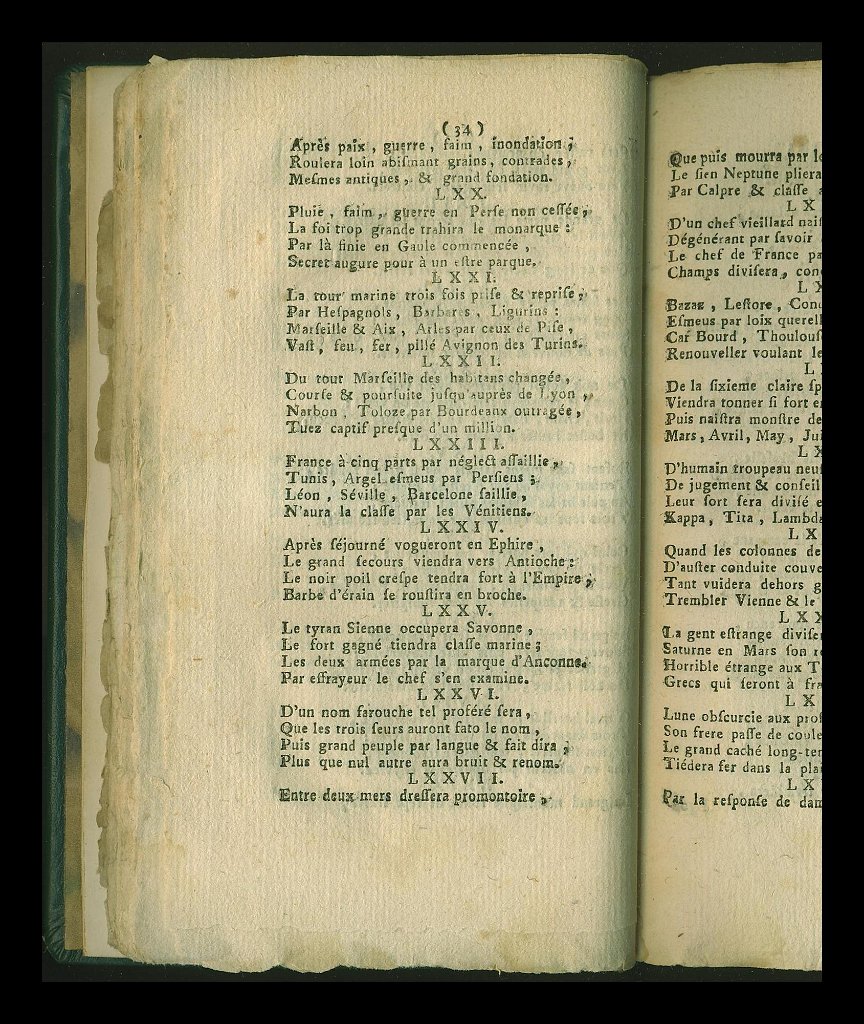 (34)
Après paix, guerre, faim, inondation ;
Roulera loin abiſmant grains, contrades,
Meſmes antiques, & grand fondation.
LXX.
Pluie, faim, guerre en Perſe non ceſſée ;
La foi trop grande trahira le monarque :
Par là finie en Gaule commencée,
Secret augure pour à un eſtre parque.
LXXI.
La tour marine trois fois priſe & repriſe ;
Par Heſpagnols, Barbares, Ligurins :
Marſeille & Aix, Arles par ceux de Piſe,
Vaſt, feu, fer, pillé Avignon des Turins.
LXXII.
Du tout Marſeille des habitans changée,
Courſe & pourſuite juſqu'auprès de Lyon,
Narbon, Toloze par Bourdeaux outragée,
Tuez captif preſque d'un million.
LXXIII.
France à cinq parts par néglect aſſaillie,
Tunis, Argel eſmeus par Perſiens ;
Léon, Séville, Barcelone faillie,
N'aura la claſſe par les Vénitiens.
LXXIV.
Après ſéjourné vogueront en Ephire,
Le grand ſecours viendra vers Antioche :
Le noir poil creſpe tendra fort à l'Empire ;
Barbe d'érain ſe rouſtira en broche.
LXXV.
Le tyran Sienne occupera Savonne,
Le fort gagné tiendra claſſe marine ;
Les deux armées par la marque d'Anconne.
Par effrayeur le chef s'en examine.
LXXVI.
D'un nom farouche tel proféré ſera,
Que les trois ſeurs auront fato le nom,
Puis grand peuple par langue & fait dira ;
Plus que nul autre aura bruit & renom.
LXXVII.
Entre deux mers dreſſera promontoire,
Que puis mourra par
Le ſien Neptune pliera
Par Calpre & claſſe
LX
D'un chef vieillard
Dégénérant par ſavoir
Le chef de France
Champs diviſera,
LX
Bazas, Leſtore,
Eſmeus par loix
Car Bourd,
Renouveller voulant
L
De la ſixieme claire
Viendra tonner ſi fort
Puis naiſtra monſtre de
Mars, Avril, May,
LX
D'humain troupeau
De jugement & conſeil
Leur ſort ſera diviſé
Kappa, Tita,
LX
Quand les colonnes de
D'auſter conduite
Tant vuidera dehors
Trembler Vienne & le
LXX
La gent eſtrange
Saturne en Mars ſon
Horrible étrange aux
Grecs qui ſeront à
LX
Lune obſcurcie aux
Son frere paſſe de
Le grand caché
Tiédera fer dans la
LX
Par la reſponſe de